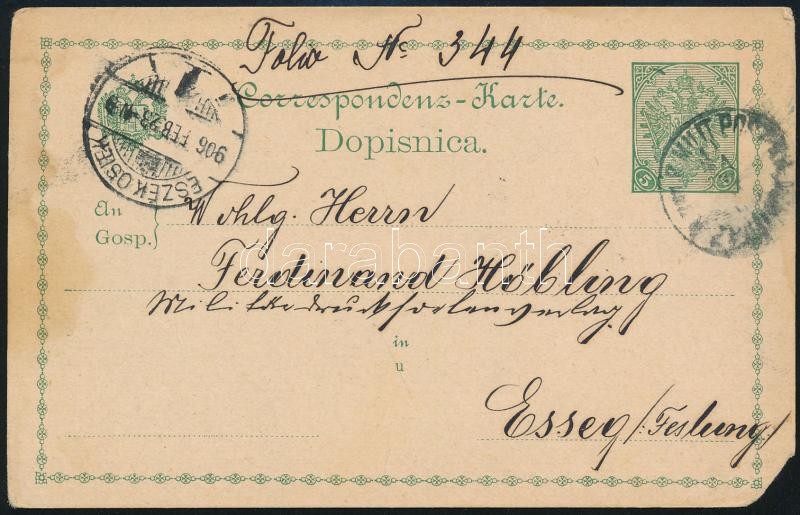 Folio No 344
Correspondenz-Karte.
Dopisnica.
ESZÉK OSIEK
906 FEB 23
5
5
An
Gosp.
Wohlg. Herrn
Ferdinand Höbling
Militärdrucksortenverlag
in
u
Esseg /: Festung
darabanth